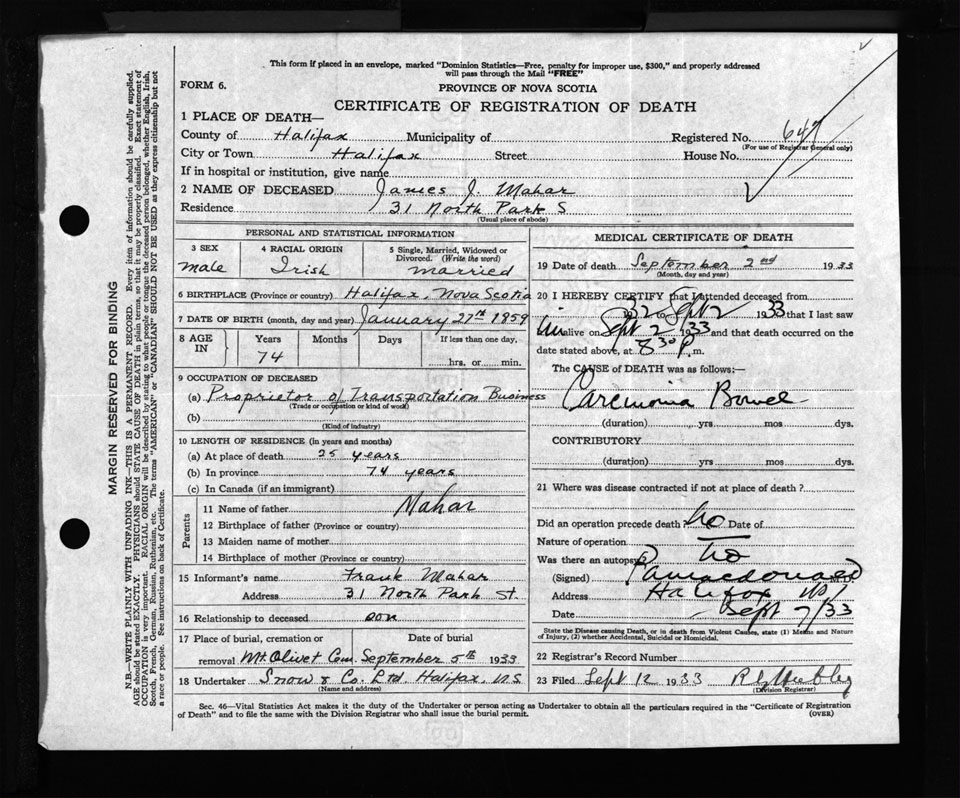 This form if placed in an envelope, marked "Dominion Statistics—Free, penalty for improper use, $300," and properly addressed
will pass through the Mail "FREE"
FORM 6.
PROVINCE OF NOVA SCOTIA
CERTIFICATE OF REGISTRATION OF DEATH
1 PLACE OF DEATH—
County of Halifax Municipality of Registered No. 647
(For use of Registrar General only)
City or Town Halifax Street House No.
If in hospital or institution, give name
2 NAME OF DECEASED James J. Mahar
Residence 31 North Park S
(Usual place of abode)
PERSONAL AND STATISTICAL INFORMATION
3 SEX 4 RACIAL ORIGIN 5 Single, Married, Widowed or
Divorced. (Write the word)
male Irish married
6 BIRTHPLACE (Province or country) Halifax, Nova Scotia
7 DATE OF BIRTH (month, day and year) January 27th 1859
8 AGE IN Years Months Days If less than one day,
74 hrs. or min.
9 OCCUPATION OF DECEASED
(a) Proprietor of Transportation Business
(Trade or occupation or kind of work)
(b)
(Kind of industry)
10 LENGTH OF RESIDENCE (in years and months)
(a) At place of death 25 years
(b) In province 74 years
(c) In Canada (if an immigrant)
Parents
11 Name of father Mahar
12 Birthplace of father (Province or country)
13 Maiden name of mother
14 Birthplace of mother (Province or country)
15 Informant's name Frank Mahar
Address 31 North Park St.
16 Relationship to deceased son
17 Place of burial, cremation or Date of burial
removal Mt. Olivet Cem. September 5th 1933
18 Undertaker Snow & Co. Ltd. Halifax, N.S.
(Name and address)
MEDICAL CERTIFICATE OF DEATH
19 Date of death September 2nd 1933
(Month, day and year)
20 I HEREBY CERTIFY that I attended deceased from
32 to Sept 2 1933 that I last saw
him alive on Sept 2 1933 and that death occurred on the
date stated above, at 8 30 P m.
The CAUSE of DEATH was as follows:—
Carcinonia Bowel
(duration) yrs mos dys.
CONTRIBUTORY
(duration) yrs mos dys.
21 Where was disease contracted if not at place of death?
Did an operation precede death? No Date of
Nature of operation
Was there an autopsy? No
(Signed)
Address Halifax NS
Date Sept 7/33
State the Disease causing Death, or in death from Violent Causes, state (1) Means and Nature
of Injury, (2) whether Accidental, Suicidal or Homicidal.
22 Registrar's Record Number
23 Filed Sept 12 1933
(Division Registrar)
Sec. 46—Vital Statistics Act makes it the duty of the Undertaker or person acting as Undertaker to obtain all the particulars required in the "Certificate of Registration
of Death" and to file the same with the Division Registrar who shall issue the burial permit. (OVER)
MARGIN RESERVED FOR BINDING
N.B.—WRITE PLAINLY WITH UNFADING INK—THIS IS A PERMANENT RECORD. Every item of information should be carefully supplied.
AGE should be stated EXACTLY. PHYSICIANS should STATE CAUSE OF DEATH in plain terms, so that it may be properly classified. Exact statement of
OCCUPATION is very important. RACIAL ORIGIN will be described by stating to what people or tongue the deceased person belonged, whether English, Irish,
Scotch, French, German, Russian, Ruthenian, etc. The terms "AMERICAN" or "CANADIAN" SHOULD NOT BE USED as they express citizenship but not
a race or people. See instructions on back of Certificate.